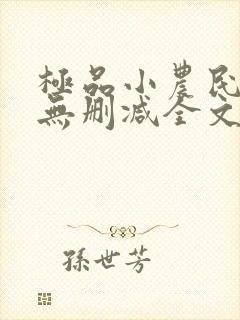 極品小農民
無刪減全文
孫世芳